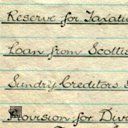 Reserve for Taxati
Loan from Scottis
Sundry Creditors
Provision for Div